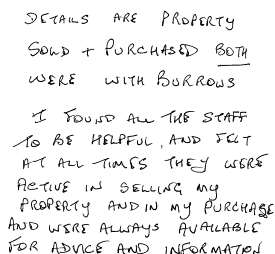 DETAILS ARE PROPERTY
SOLD + PURCHASED BOTH
WERE WITH BURROWS
I FOUND ALL THE STAFF
TO BE HELPFUL, AND FELT
AT ALL TIMES THEY WERE
ACTIVE IN SELLING MY
PROPERTY AND IN MY PURCHASE
AND WERE ALWAYS AVAILABLE
FOR ADVICE AND INFORMATION